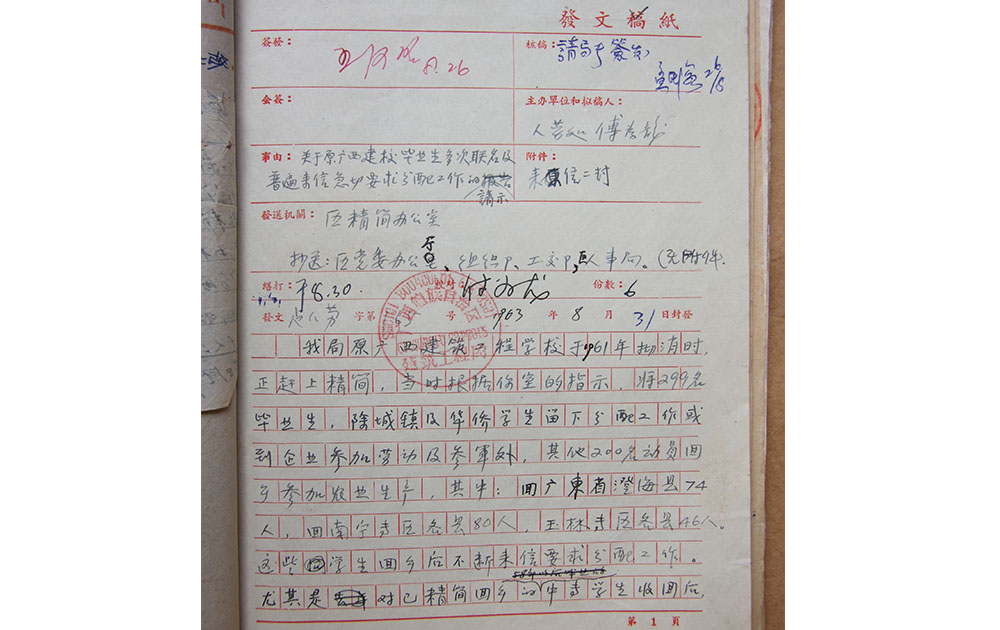 發文稿紙
簽發：
8.26
核稿：請局長簽发
26/8
会簽：
主办單位和拟稿人：
人劳处 傅
事由：关于原广西建校毕业生多次联名及
普遍来信急切要求分配工作的报告
請示
附件：
来信二封
發送机關：区精简办公室
抄送：区党委办公厅、组织P、工交P，区人事局。
缮打：8.30.
校对：
份數：6
發文 字第 63 号 1963 年 8 月 31 日封發
广西僮族自治区
建筑工程局
我局原广西建筑工程学校于1961年撤消时，
正赶上精简，当时根据你室的指示，将299名
毕业生，除城镇及华侨学生留下分配工作或
到企业参加劳动及参軍外，其他200名动员回
乡参加农业生产，其中：回广東省澄海县74
人，回南宁专区各县80人，玉林专区各县46人。
这些学生回乡后不断来信要求分配工作。
58年以后毕业的
尤其是去年对已精简回乡的中专学生收回后，
第 1 頁